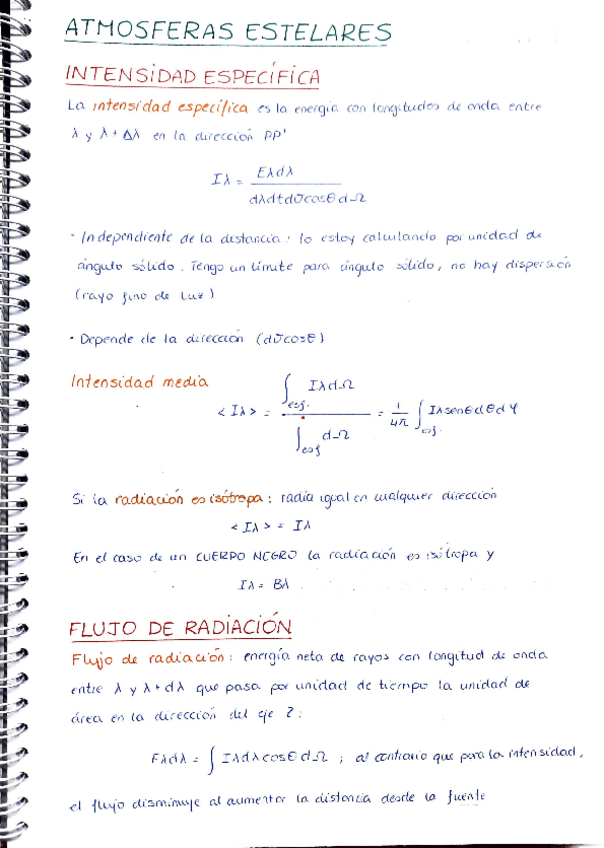 ATMOSFERAS ESTELARES
INTENSIDAD ESPECÍFICA
La intensidad específica es la energía con longitudes de onda entre
λ y λ + Δλ en la dirección PP'
Iλ = Eλdλ / dλdtdσcosθdΩ
· Independiente de la distancia: lo estoy calculando por unidad de
ángulo sólido. Tengo un límite para ángulo sólido, no hay dispersión
(rayo fino de luz)
· Depende de la dirección (dσcosθ)
Intensidad media
<Iλ> = ∫esf. IλdΩ / ∫esf dΩ = 1/4π ∫esf. Iλsenθdθdφ
Si la radiación es isótropa: radia igual en cualquier dirección
<Iλ> = Iλ
En el caso de un CUERPO NEGRO la radiación es isótropa y
Iλ = Bλ
FLUJO DE RADIACIÓN
Flujo de radiación: energía neta de rayos con longitud de onda
entre λ y λ + dλ que pasa por unidad de tiempo la unidad de
área en la dirección del eje z:
Fλdλ = ∫ IλdλcosθdΩ ; al contrario que para la intensidad,
el flujo disminuye al aumentar la distancia desde la fuente